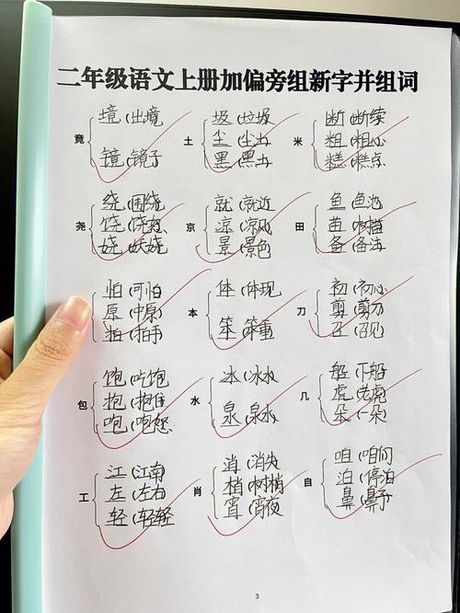 二年级语文上册加偏旁组新字并组词
境(出境 圾(垃圾 断(断续
竟 土 尘(尘土 米 粗(粗心
镜(镜子 黑(黑土 糕(糕点
绕(围绕 就(就近 鱼(鱼池
尧 饶(饶恕 京 凉(凉风 田 苗(树苗
娆(妖娆 景(景色 备(备注
怕(可怕 体(体现 初(初心
原(中原 本 刀 剪(剪刀
拍(拍手 笨(笨重 召(召见
饱(吃饱 冰(冰水 船(下船
包 抱(抱住 水 几 虎(老虎
咆(咆怒 泉(泉水 朵(一朵
江(江南 消(消失 咱(咱们
工 左(左右 肖 梢(树梢 自 泊(停泊
轻(轻轻 宵(宵夜 鼻(鼻子
3